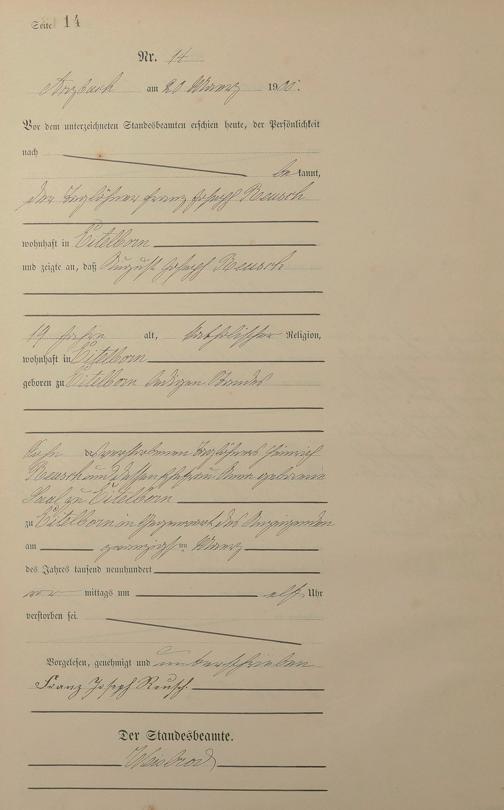 Seite 14
Nr. 14
Arzbach am 20 März 1900.
Vor dem unterzeichneten Standesbeamten erschien heute, der Persönlichkeit
nach
be kannt,
der Taglöhner Franz Joseph Reusch
wohnhaft in Eitelborn
und zeigte an, daß August Joseph Reusch
19 Jahre alt, katholischer Religion,
wohnhaft in Eitelborn
geboren zu Eitelborn ledigen Standes
Sohn des verstorbenen Taglöhners Heinrich
Reusch und dessen Ehefrau Anna geborene
Saal zu Eitelborn
zu Eitelborn in Gegenwart des Anzeigenden
am zwanzigsten März
des Jahres tausend neunhundert
vor mittags um elf Uhr
verstorben sei.
Vorgelesen, genehmigt und unterschrieben
Franz Joseph Reusch.
Der Standesbeamte.
Weisbrod